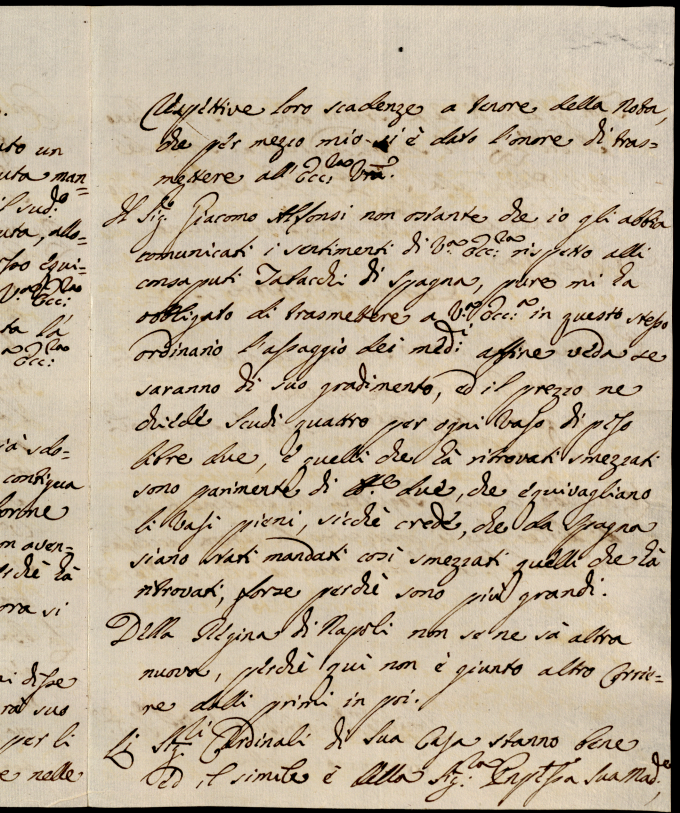 uto un
uta man=
il sud.º
uta, allo=
equi=
V.ª Ecc.ª
ta la
Ecc.ª
ià solo=
contigua
forme
on aven=
perchè hà
ora si
disse
rà suo
per li
e nelle
respettive loro scadenze a tenore della Nota,
che per mezzo mio si è dato l'onore di tras=
mettere all'Ecc.za Vrã.
Il Sig.r Giacomo Alfonsi non ostante che io gli abbia
comunicati i sentimenti di V.ª Ecc.za rispetto alli
consaputi Tabacchi di Spagna, pure mi hà
obbligato di trasmettere a V.ª Ecc.ª in questo stesso
ordinario l'assaggio dei med.i affine veda se
saranno di suo gradimento, ed il prezzo ne
chiede scudi quattro per ogni Vaso di peso
libre due, e quelli che hà ritrovati smezzati
sono parimente di lb.e due, che equivagliano
li Vasi pieni, sicchè crede, che da Spagna
siano stati mandati così smezzati quelli che hà
ritrovati, forse perchè sono più grandi.
Della Regina di Napoli non se ne sà altra
nuova, perchè quì non è giunto altro Corrie=
re dalli primi in poi.
Li Sig.li Cardinali di Sua Casa stanno bene
ed il simile è della Sig.ra Pnp̃essa Sua Mad.e,